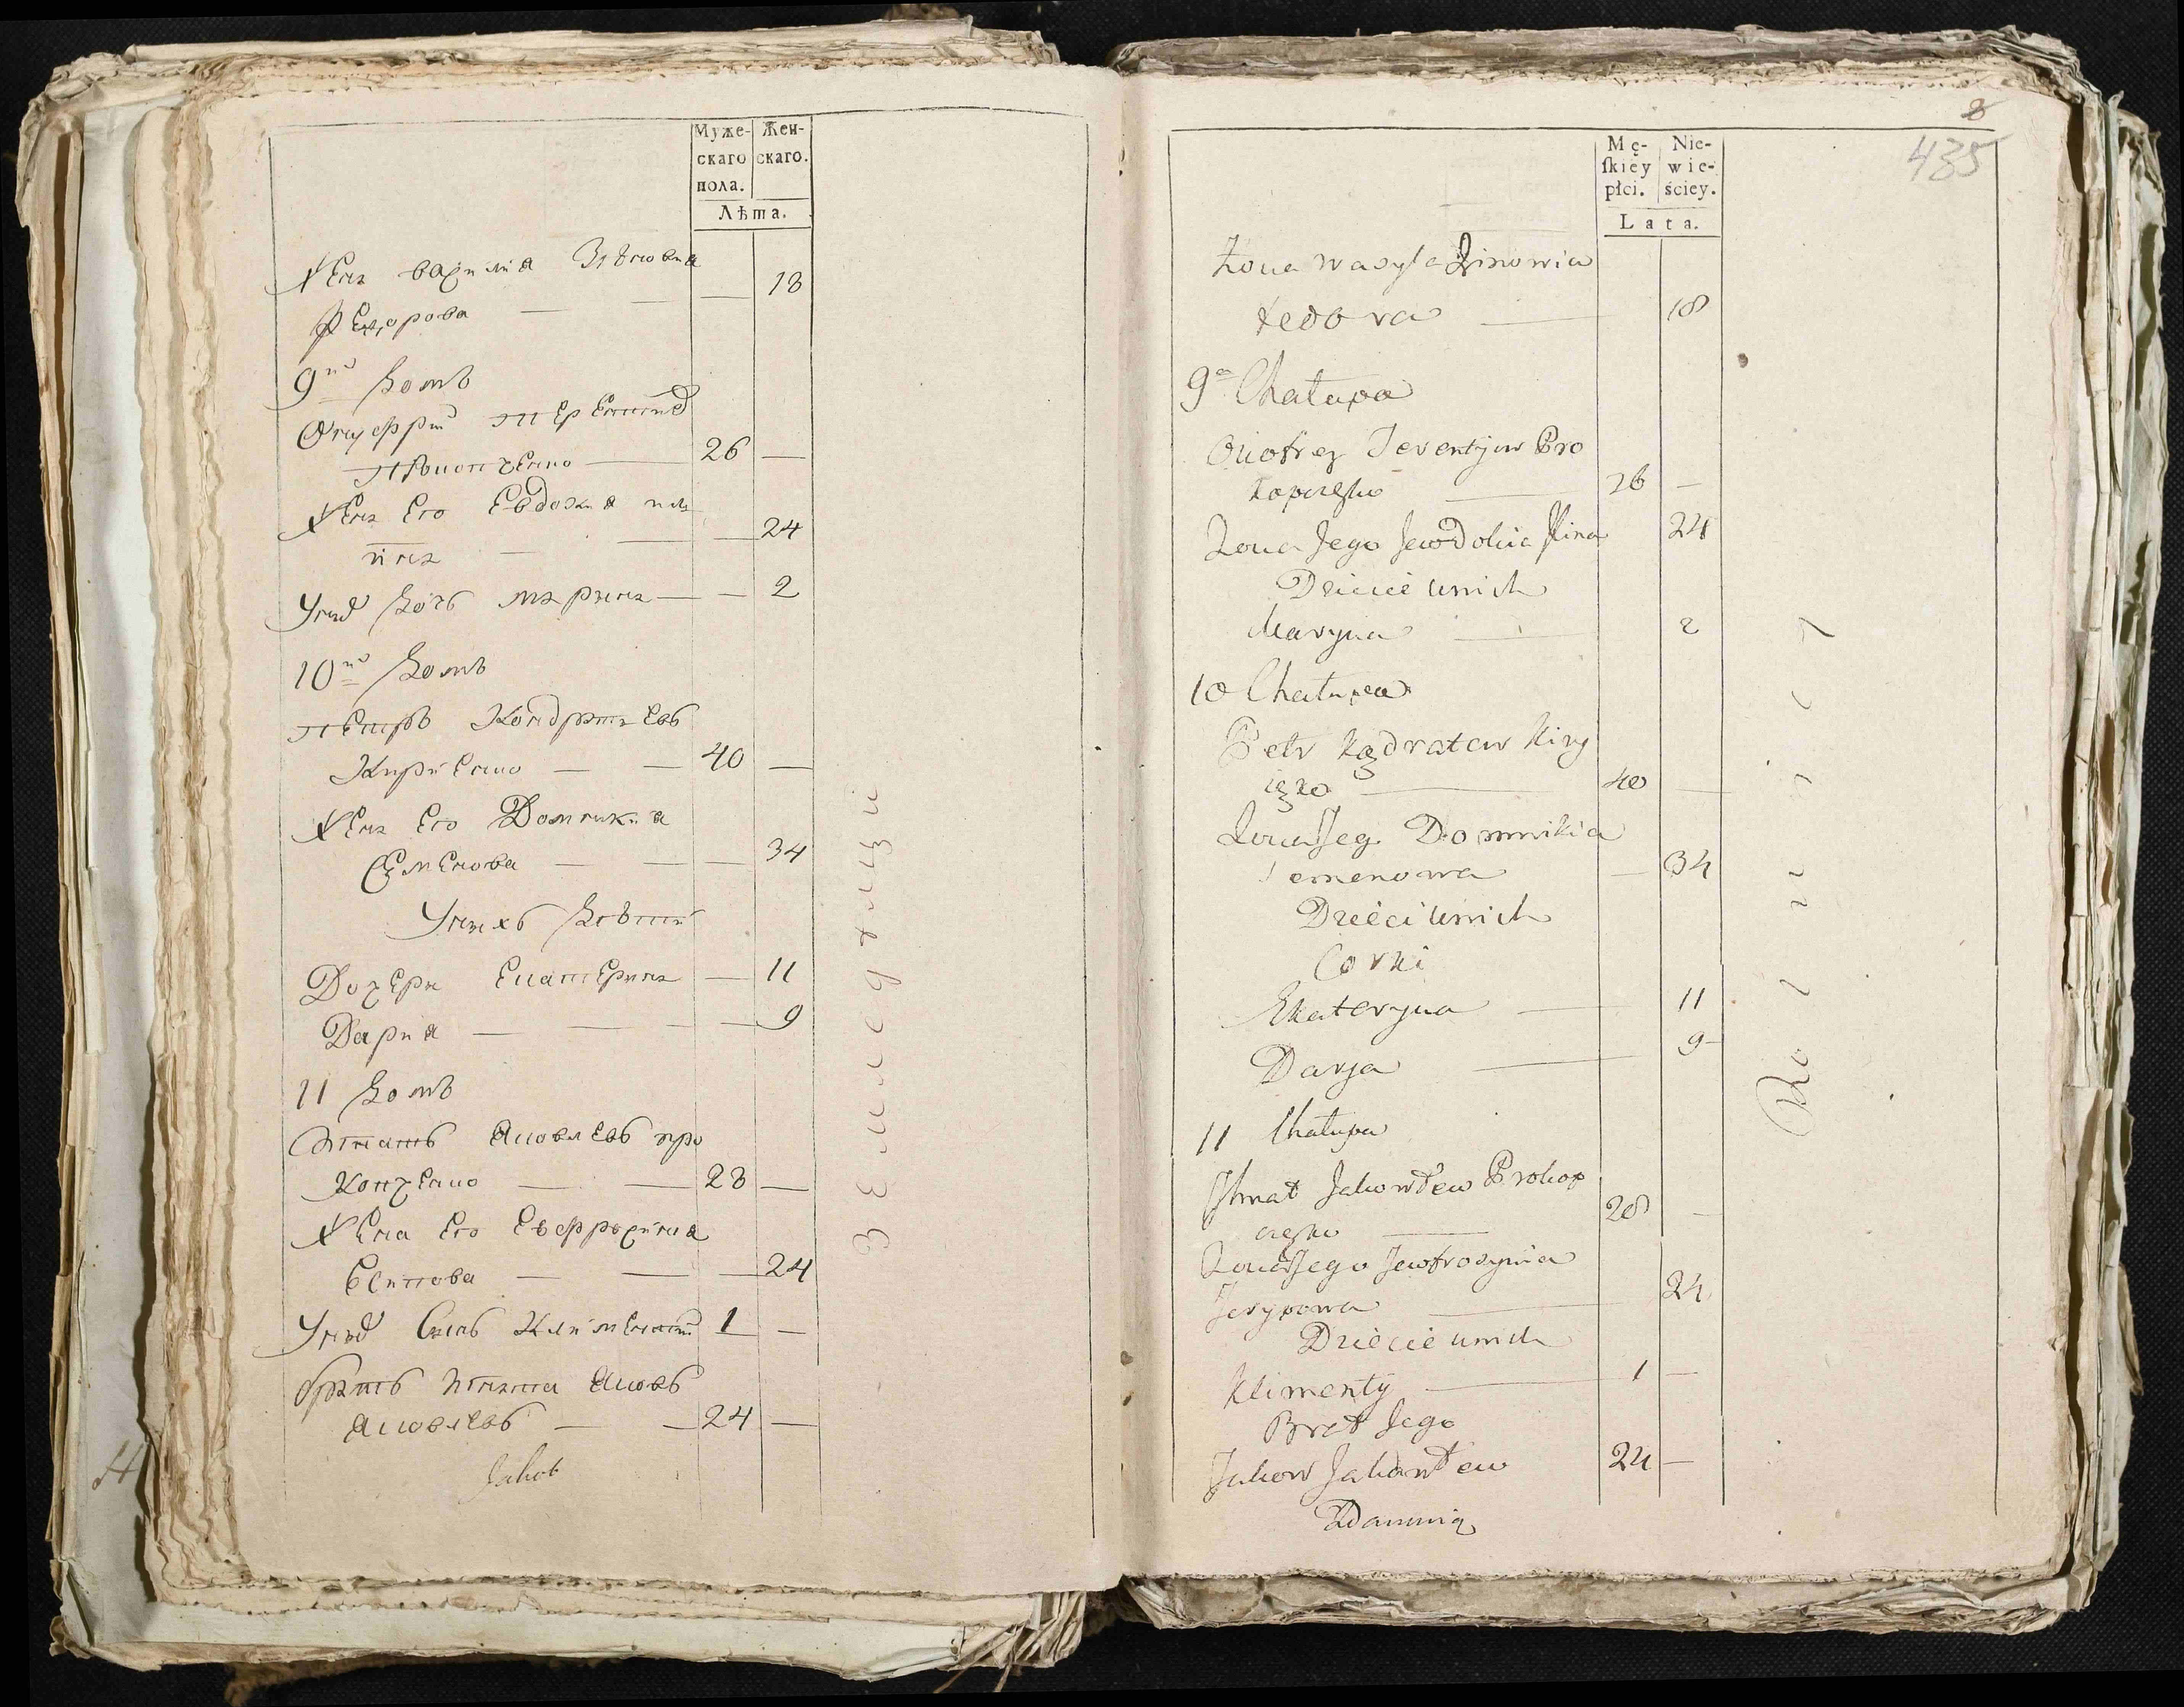 Муже- Жен-
скаго скаго.
пола.
Лѣта.
Жена василия Зѣновия
Федорова — — — 18
9й домъ
Онуфрій терентиев
Прокопченко — 26 —
Жена Его Евдокия иль
ина — — — 24
Унихъ дочь марина — — 2
10й домъ
петръ Кондратьевъ
Кириенко — — 40 —
Жена Его Домникия
Семенова — — — 34
Унихъ Детей
Дочери Екатерина — 11
Дария — — — 9
11 домъ
Игнатъ Яковлевъ про
Копченко — — 28 —
Жена Его Евфросиния
Есипова — — — 24
Унихъ Сынъ Климентий 1 —
братъ Игната Яковъ
Яковлевъ — — 24 —
Jakob
Земледѣлцы
8
435
Mę- Nie-
ſkiey wie-
płci. ściey.
Lata.
Żona wasyla Zinowia
fedora — 18
9a Chałupa
Onofrey Terentijew Pro
kopczęko — 26 —
Żona Jego Jewdokia Ilina 24
Dziecie unich
Maryna — 2
10 Chałupa
Petr Kądratew Kiry
ięko — 40 —
Żona Jego Domnikia
semenowa — 34
Dzieci unich
Corki
Ekateryna — 11
Darja — 9
11 Chałupa
Ihnat Jakowłew Prokop
częko — 28 —
Żona Jego Jewfrosynia
Jesypowa — 24
Dziecie unich
Klimenty — 1 —
Brat Jego
Jakow Jakowłew 24 —
Rolnicy